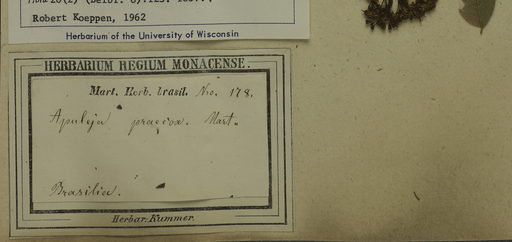 Robert Koeppen, 1962
Herbarium of the University of Wisconsin
HERBARIUM REGIUM MONACENSE.
Mart. Herb. brasil. No. 178.
Apuleja praecox. Mart.
Brasilia.
Herbar. Kummer.